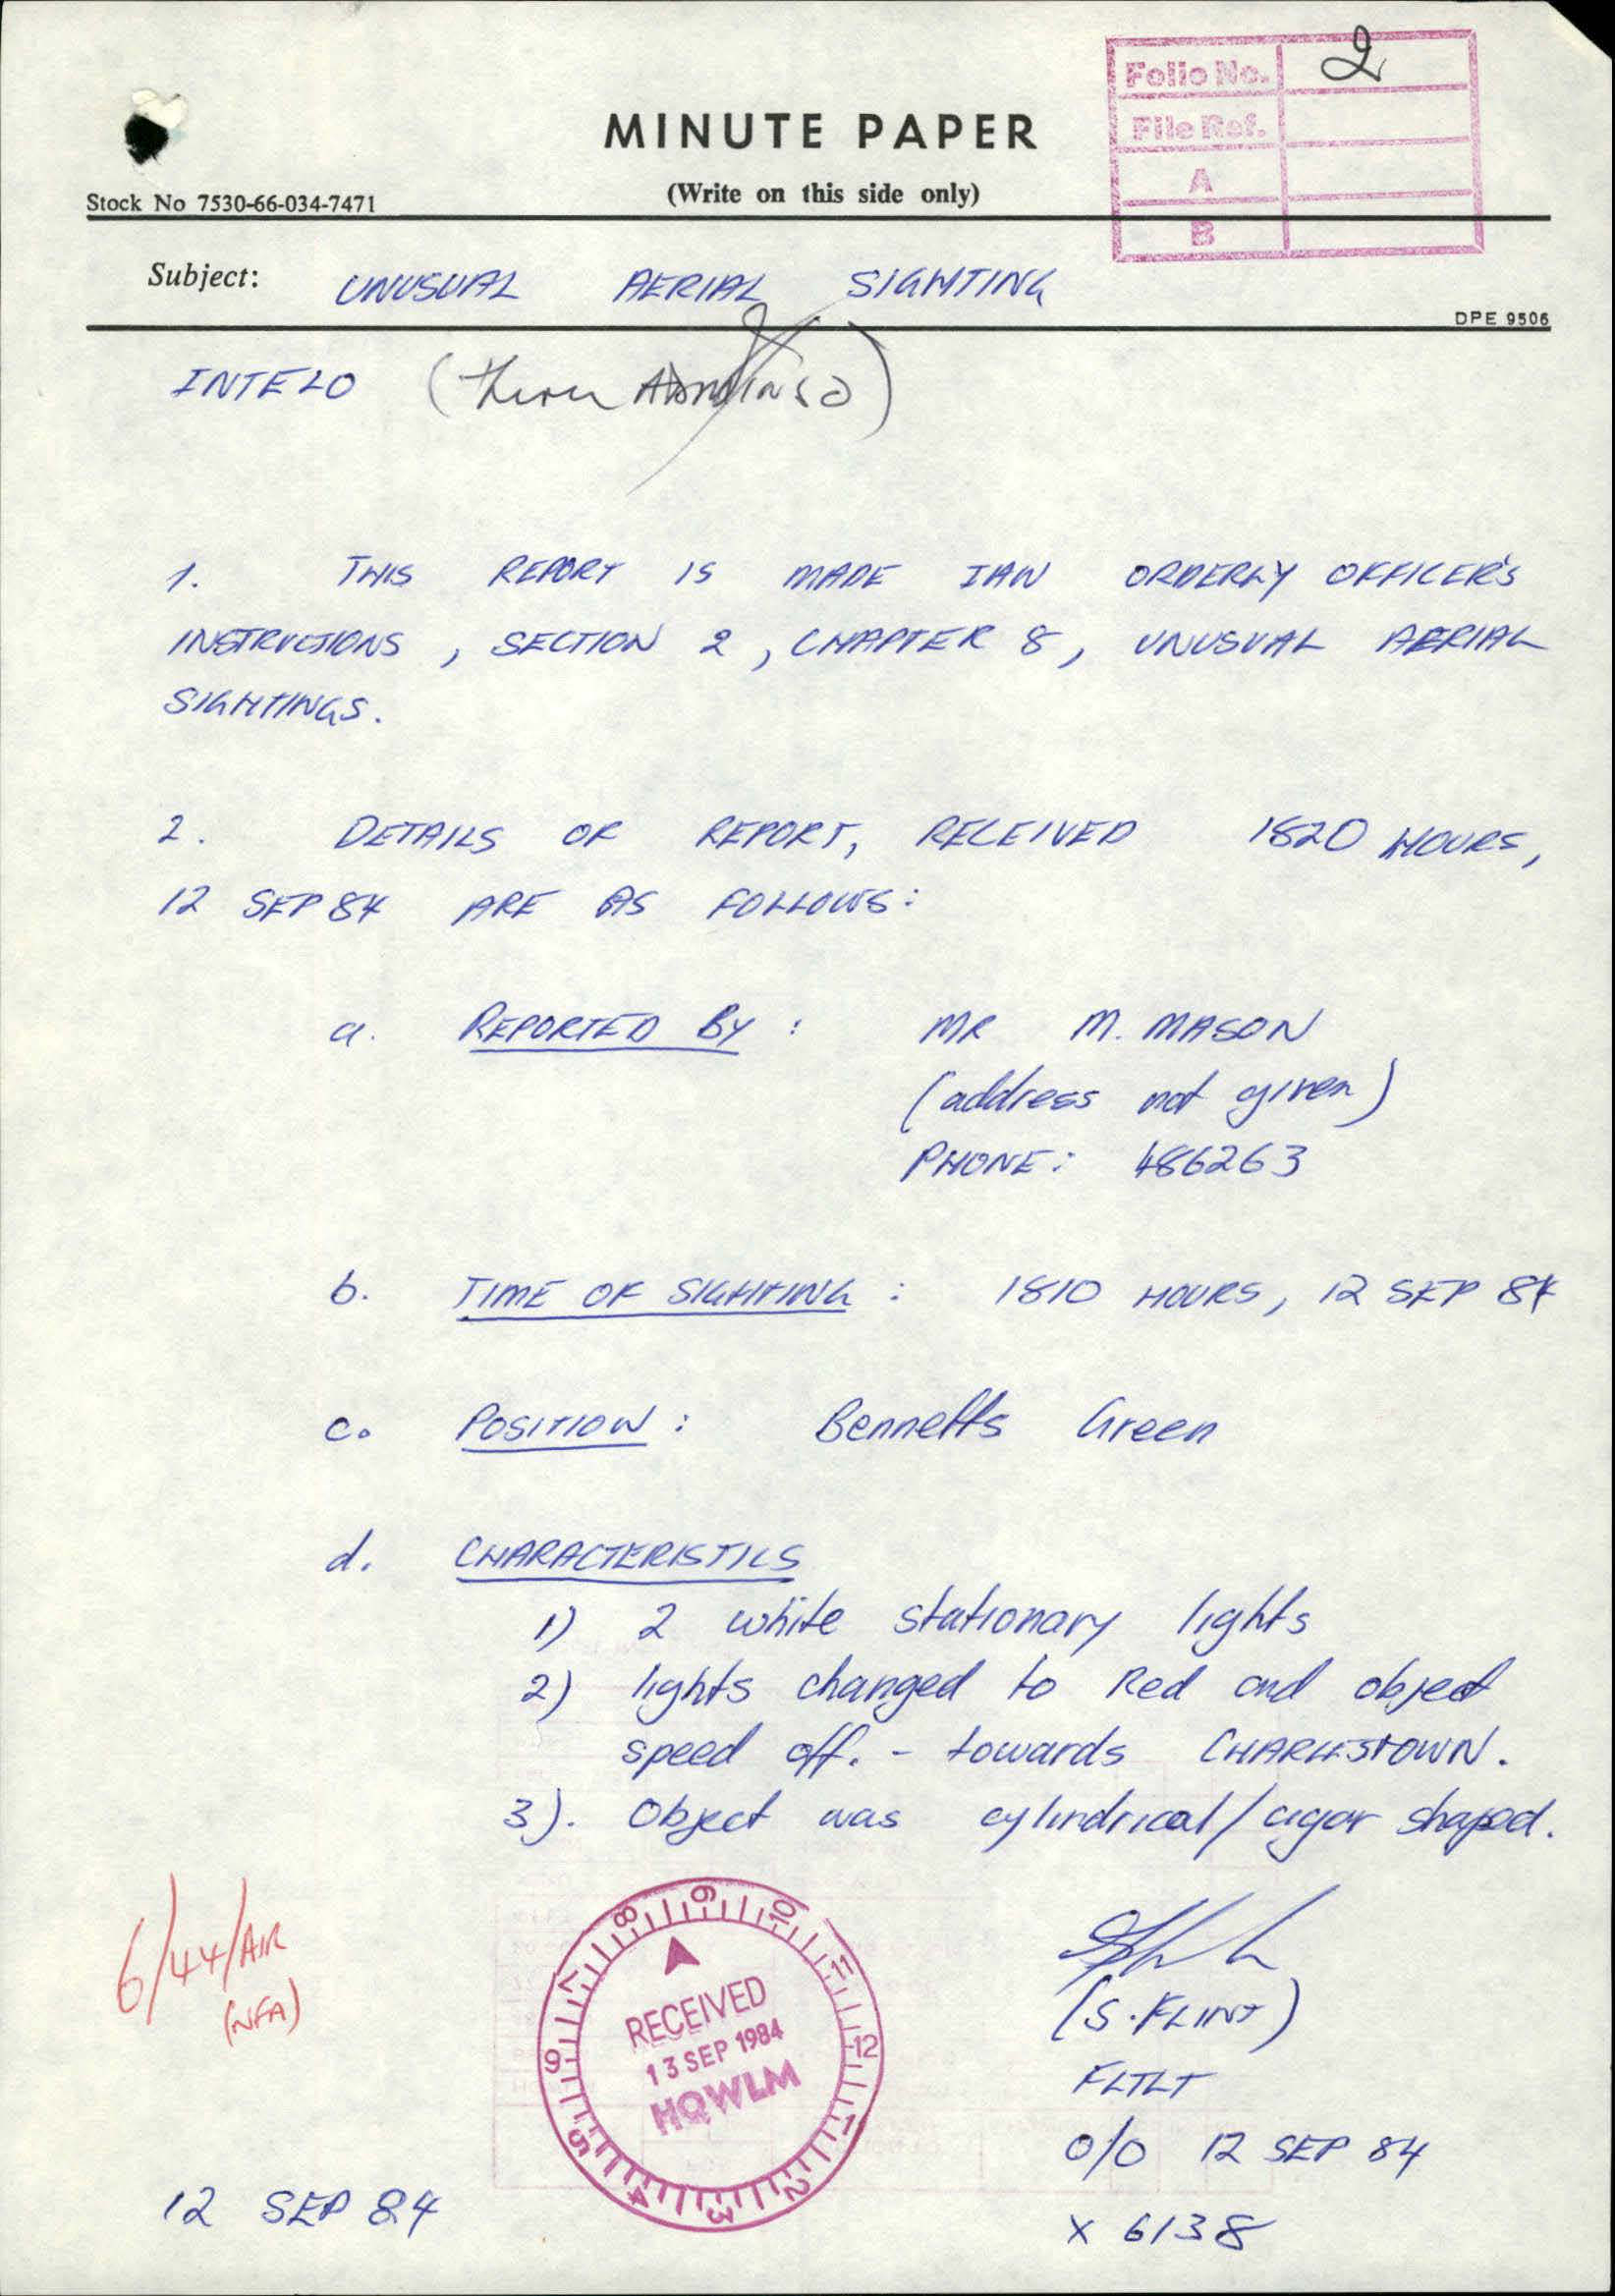 Folio No. 2
File Ref.
A
B
MINUTE PAPER
(Write on this side only)
Stock No 7530-66-034-7471
Subject: UNUSUAL AERIAL SIGHTING
DPE 9506
INTELO (thru ADMINSO)
1. THIS REPORT IS MADE IAW ORDERLY OFFICER'S
INSTRUCTIONS, SECTION 2, CHAPTER 8, UNUSUAL AERIAL
SIGHTINGS.
2. DETAILS OF REPORT, RECEIVED 1820 HOURS,
12 SEP 84 ARE AS FOLLOWS:
a. REPORTED BY: MR M. MASON
(address not given)
PHONE: 486263
b. TIME OF SIGHTING: 1810 HOURS, 12 SEP 84
c. POSITION: Bennetts Green
d. CHARACTERISTICS
1) 2 white stationary lights
2) lights changed to Red and object
speed off. - towards CHARLESTOWN.
3). Object was cylindrical/cigar shaped.
6/44/AIR
(NFA)
7 8 9 10 11 12 1 2 3 4 5 6
RECEIVED
13 SEP 1984
HQWLM
(S. FLINT)
FLTLT
O/O 12 SEP 84
x 6138
12 SEP 84